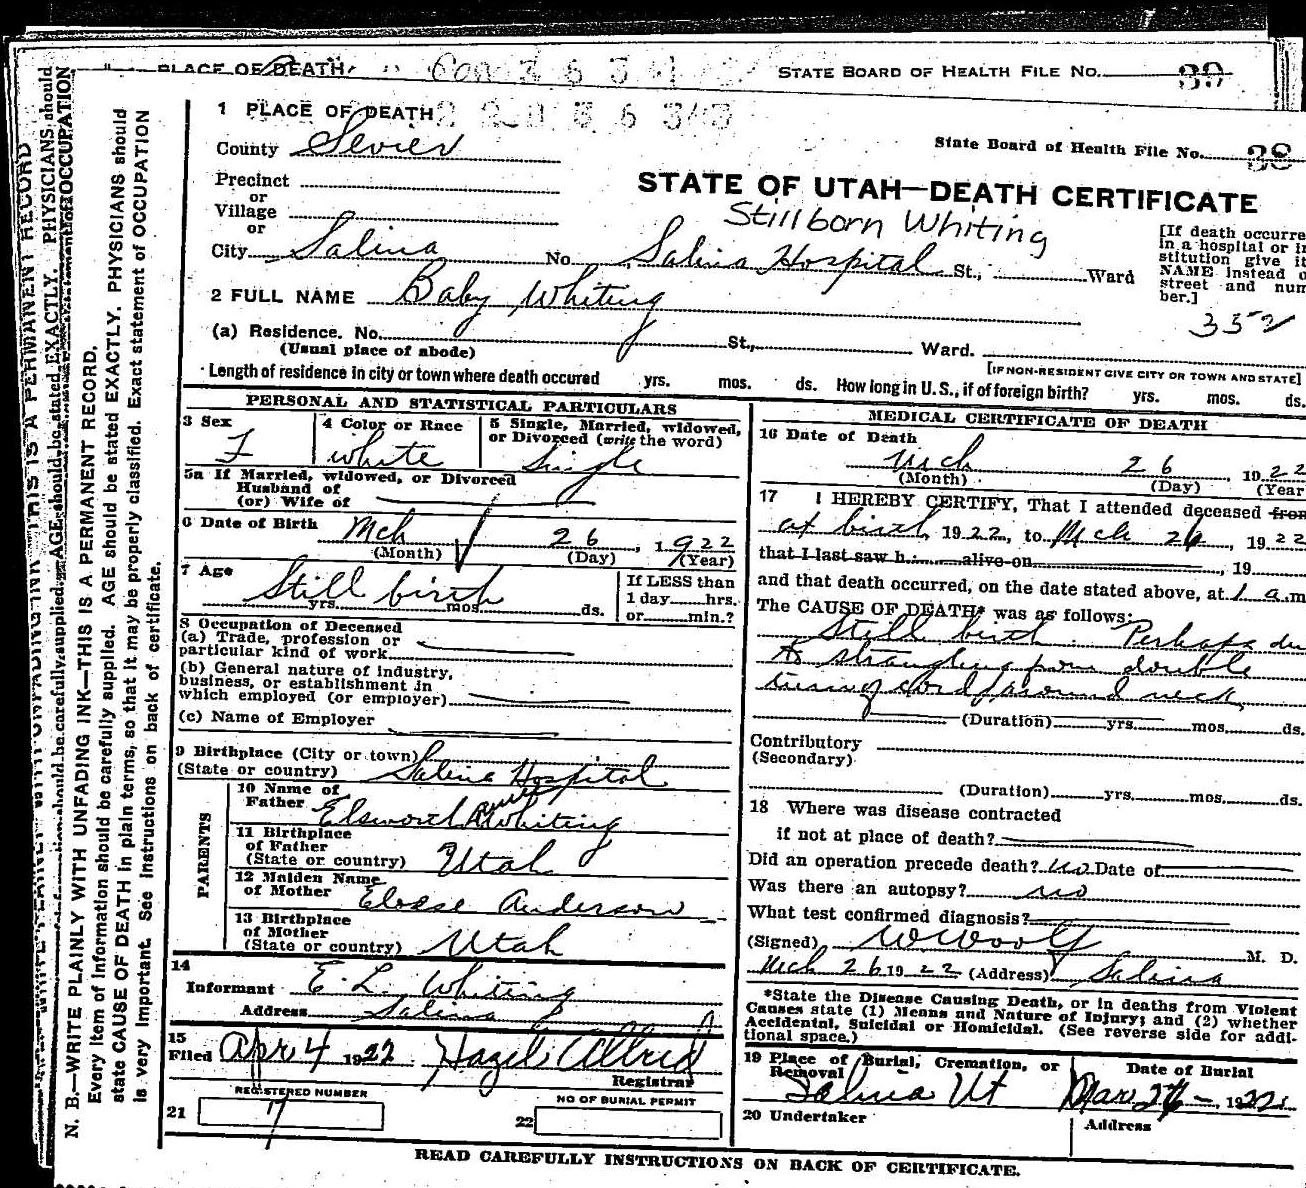 PLACE OF DEATH
STATE BOARD OF HEALTH FILE NO. 39
1 PLACE OF DEATH
County Sevier
State Board of Health File No. 38
Precinct
or
Village
or
STATE OF UTAH—DEATH CERTIFICATE
Stillborn Whiting
City Salina No. Salina Hospital St., Ward
[If death occurre
in a hospital or i
stitution give it
NAME instead o
street and num
ber.]
352
2 FULL NAME Baby Whiting
(a) Residence. No. St., Ward.
(Usual place of abode)
[IF NON-RESIDENT GIVE CITY OR TOWN AND STATE]
Length of residence in city or town where death occured yrs. mos. ds. How long in U. S., if of foreign birth? yrs. mos. ds.
PERSONAL AND STATISTICAL PARTICULARS
3 Sex F
4 Color or Race white
5 Single, Married, widowed,
or Divorced (write the word)
Single
5a If Married, widowed, or Divorced
Husband of
(or) Wife of
6 Date of Birth Mch 26, 1922
(Month) (Day) (Year)
7 Age Still birth
yrs. mos. ds.
If LESS than
1 day hrs.
or min.?
8 Occupation of Deceased
(a) Trade, profession or
particular kind of work
(b) General nature of industry,
business, or establishment in
which employed (or employer)
(c) Name of Employer
9 Birthplace (City or town)
(State or country) Salina Hospital
PARENTS
10 Name of
Father Elsworth Whiting
11 Birthplace
of Father
(State or country) Utah
12 Maiden Name
of Mother Eloese Anderson
13 Birthplace
of Mother
(State or country) Utah
14
Informant E. L. Whiting
Address Salina
15
Filed Apr 4 1922 Hazel Allred
Registrar
REGISTERED NUMBER
21 7
NO OF BURIAL PERMIT
22
MEDICAL CERTIFICATE OF DEATH
16 Date of Death
Mch 26, 1922
(Month) (Day) (Year
17 I HEREBY CERTIFY, That I attended deceased from
at birth, 1922, to Mch 26, 1922
that I last saw h alive on, 19
and that death occurred, on the date stated above, at 1 a.m
The CAUSE OF DEATH* was as follows:
Still birth. Perhaps du
to strangling from double
turn of cord around neck
(Duration) yrs. mos. ds.
Contributory
(Secondary)
(Duration) yrs. mos. ds.
18 Where was disease contracted
if not at place of death?
Did an operation precede death? no Date of
Was there an autopsy? no
What test confirmed diagnosis?
(Signed) W Woolf M. D.
Mch 26 1922 (Address) Salina
*State the Disease Causing Death, or in deaths from Violent
Causes state (1) Means and Nature of Injury; and (2) whether
Accidental, Suicidal or Homicidal. (See reverse side for addi-
tional space.)
19 Place of Burial, Cremation, or
Removal
Salina Ut
Date of Burial
Mar 26 - 1922
20 Undertaker
Address
READ CAREFULLY INSTRUCTIONS ON BACK OF CERTIFICATE.
N. B.—WRITE PLAINLY WITH UNFADING INK—THIS IS A PERMANENT RECORD.
Every item of information should be carefully supplied. AGE should be stated EXACTLY. PHYSICIANS should
state CAUSE OF DEATH in plain terms, so that it may be properly classified. Exact statement of OCCUPATION
is very important. See instructions on back of certificate.